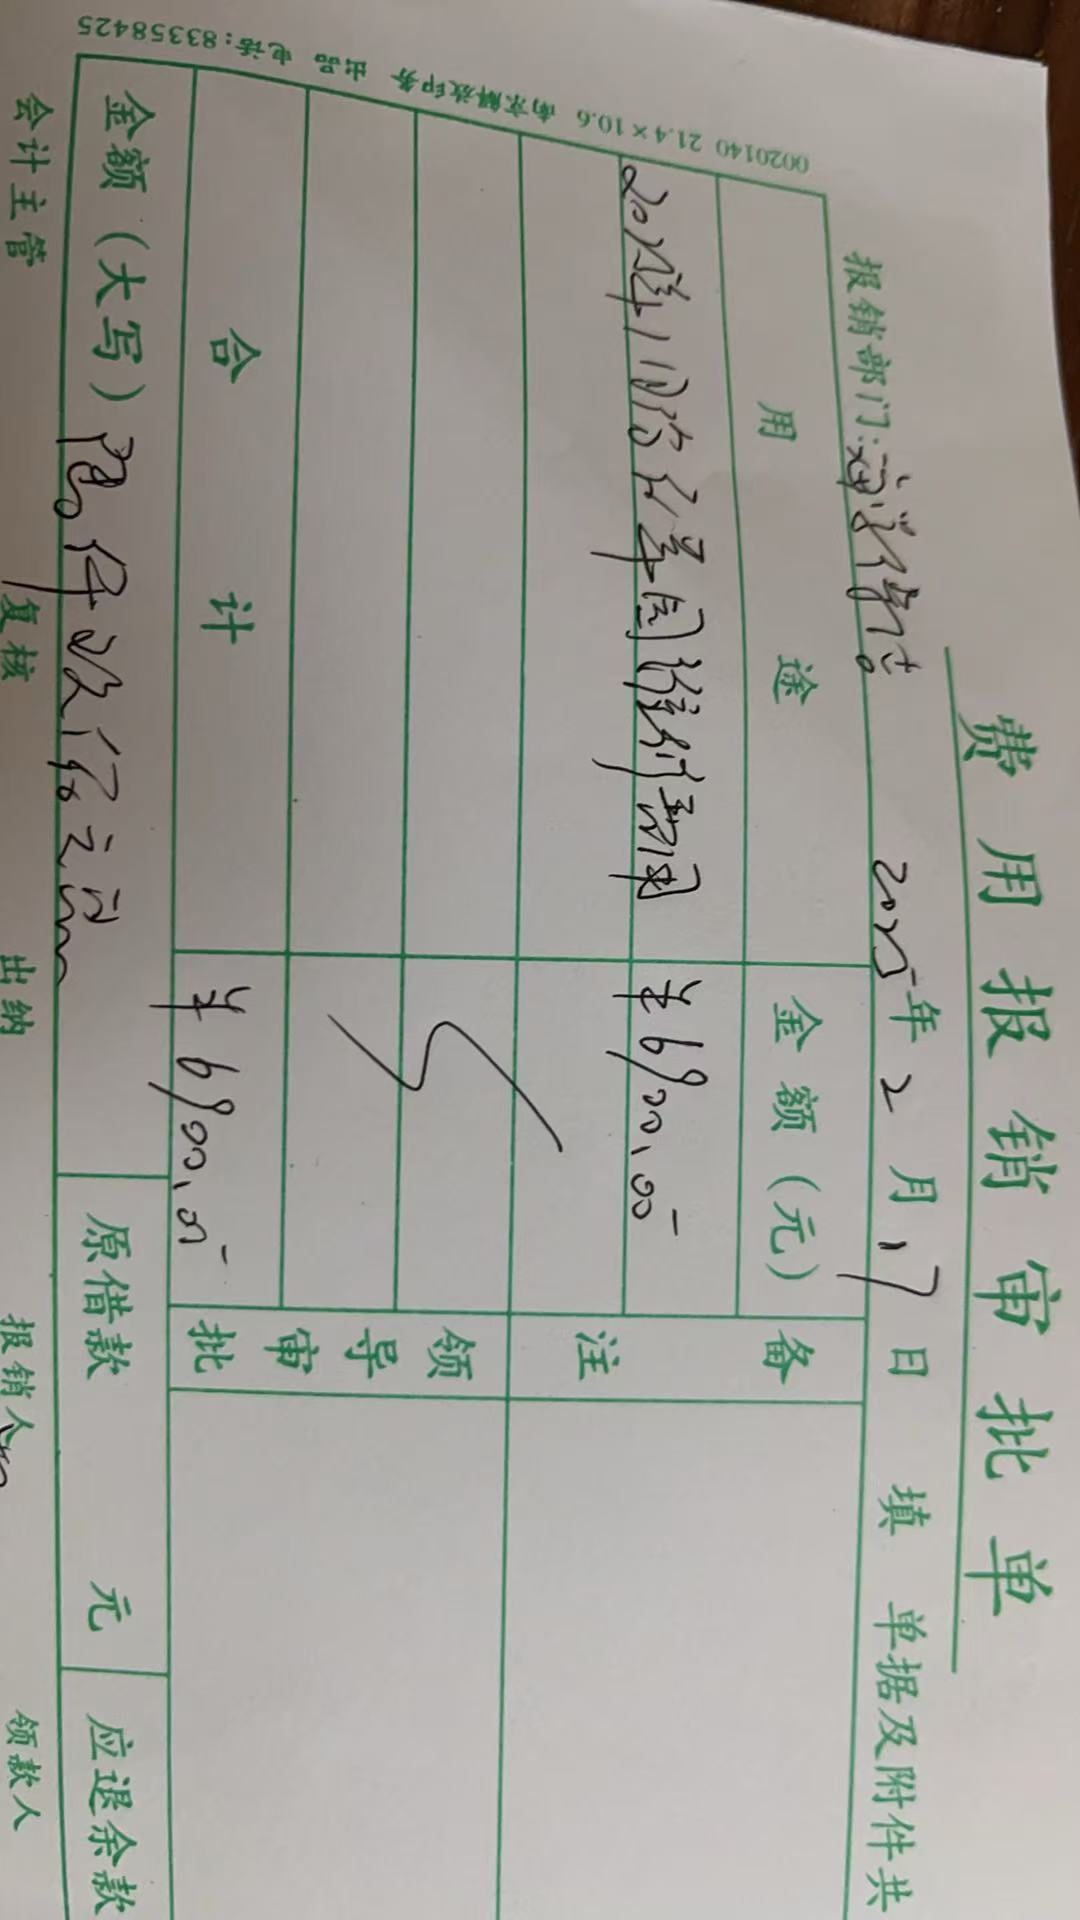 费用报销审批单
报销部门: 2025年2月17日 填 单据及附件共
用途 金额(元) 备注
2025年1月 ¥6900.00
领导审批
合计 ¥6900.00
金额(大写) 陆仟玖佰元正 原借款 元 应退余款
会计主管 复核 出纳 报销人 领款人
0020140 21.4×10.6 南京解放印务 出品 电话:83358425